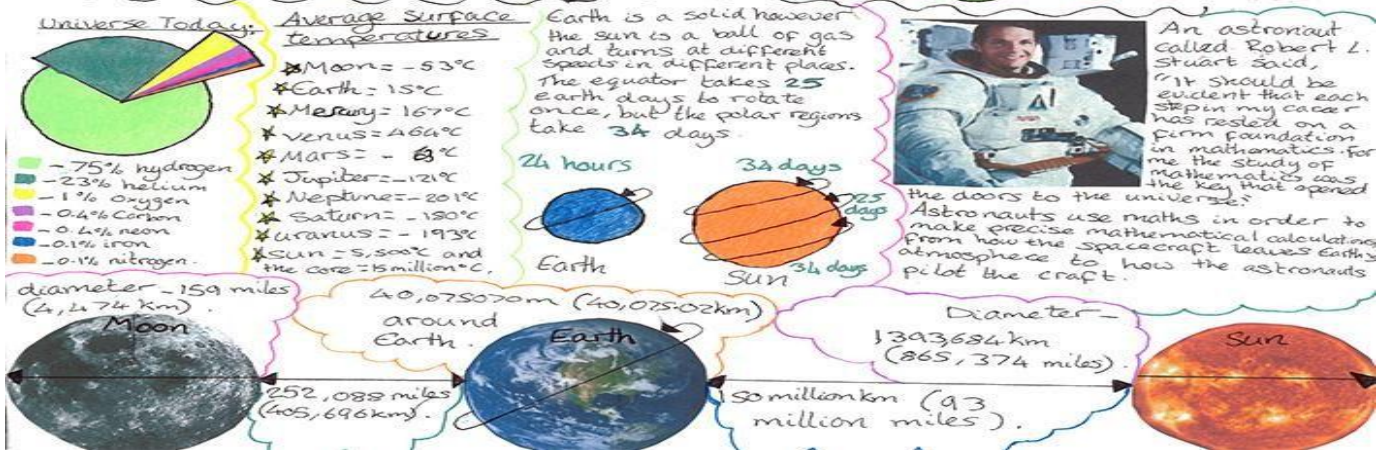 Universe Today:
-75% hydrogen
-23% helium
-1% Oxygen
-0.4% Carbon
-0.4% neon
-0.1% iron
-0.1% nitrogen
Average Surface
temperatures
Moon = -53°C
Earth = 15°C
Mercury = 167°C
Venus = 464°C
Mars = - °C
Jupiter = -121°C
Neptune = -201°C
Saturn = -180°C
Uranus = -193°C
Sun = 5,500°C and
the core = 15 million °C.
Earth is a solid however
the sun is a ball of gas
and turns at different
speeds in different places.
The equator takes 25
earth days to rotate
once, but the polar regions
take 34 days.
24 hours
Earth
34 days
25
days
34 days
Sun
An astronaut
called Robert L.
Stuart said,
"It should be
evident that each
step in my career
has rested on a
firm foundation
in mathematics. For
me the study of
mathematics was
the key that opened
the doors to the universe."
Astronauts use maths in order to
make precise mathematical calculations
from how the spacecraft leaves Earth's
atmosphere to how the astronauts
pilot the craft.
diameter - 159 miles
(4,474 km).
Moon
252,088 miles
(405,696km).
40,075070m (40,075.02km)
around
Earth.
Earth
150 million km (93
million miles).
Diameter -
1393,684 km
(865,374 miles).
Sun